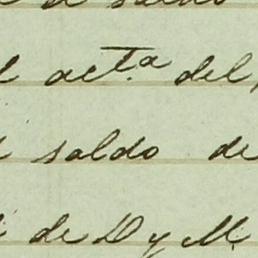 saldo
act.ª del
saldo de
de D y M.